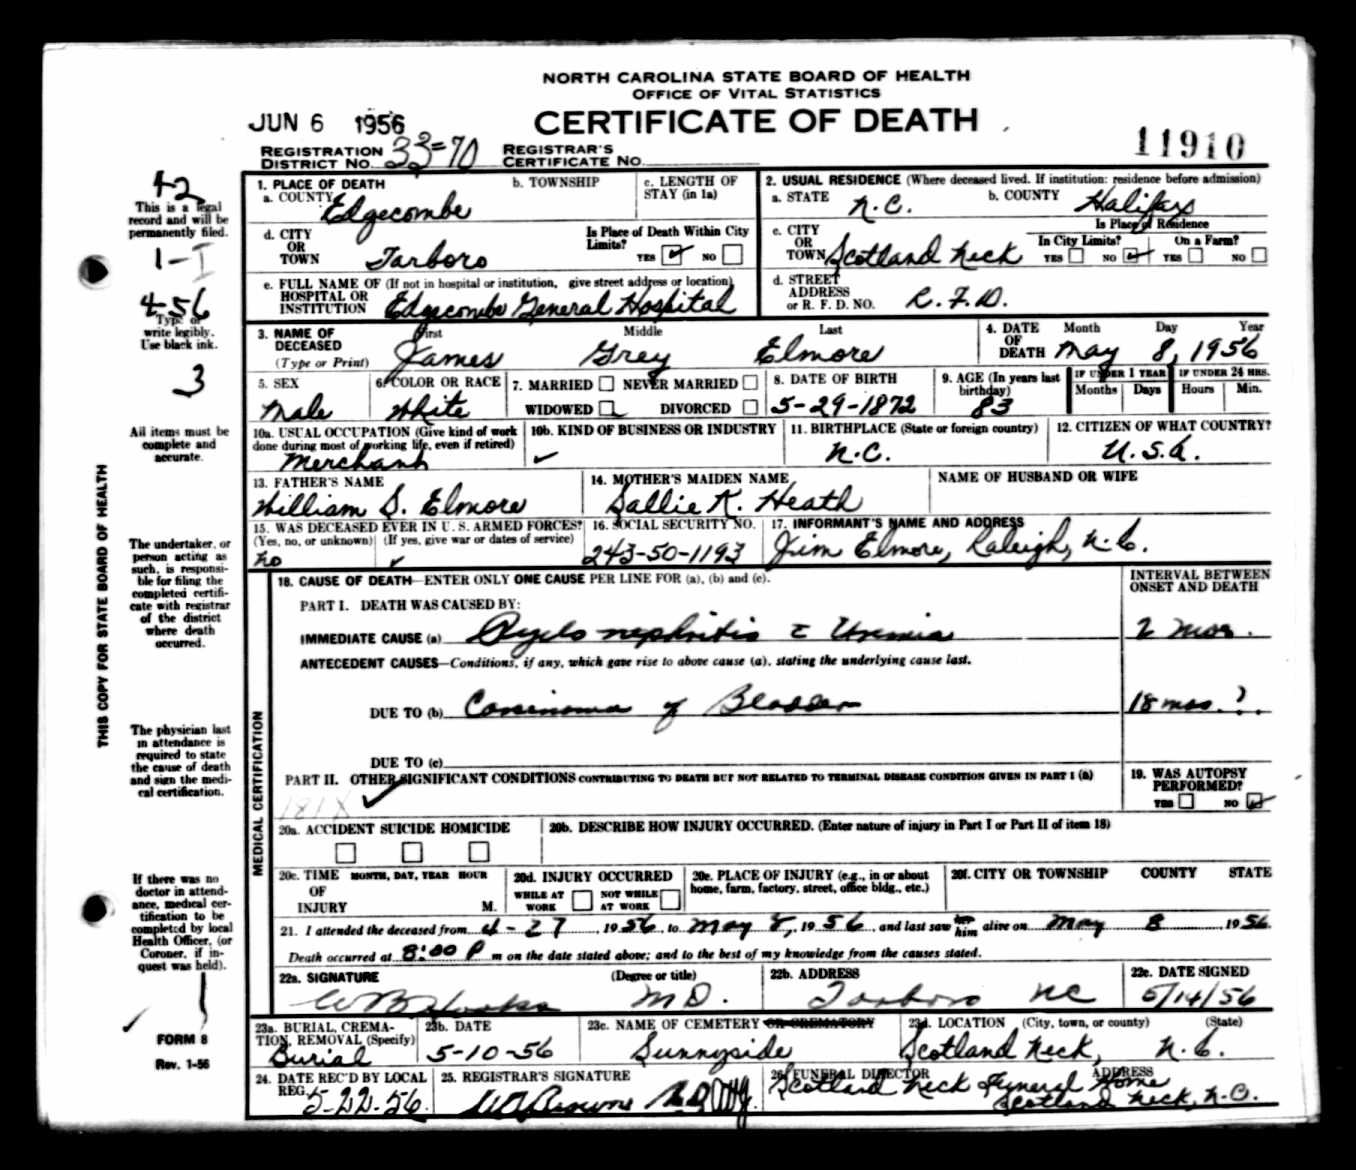 NORTH CAROLINA STATE BOARD OF HEALTH
OFFICE OF VITAL STATISTICS
JUN 6 1956
CERTIFICATE OF DEATH
11910
REGISTRATION DISTRICT NO. 33-70
REGISTRAR'S CERTIFICATE NO.
42
This is a legal record and will be permanently filed.
1-I
456
Type or write legibly. Use black ink.
3
All items must be complete and accurate.
The undertaker, or person acting as such, is responsible for filing the completed certificate with registrar of the district where death occurred.
The physician last in attendance is required to state the cause of death and sign the medical certification.
If there was no doctor in attendance, medical certification to be completed by local Health Officer, (or Coroner, if inquest was held).
FORM 8
Rev. 1-56
THIS COPY FOR STATE BOARD OF HEALTH
1. PLACE OF DEATH
a. COUNTY Edgecombe
b. TOWNSHIP
c. LENGTH OF STAY (in 1a)
2. USUAL RESIDENCE (Where deceased lived. If institution: residence before admission)
a. STATE N.C.
b. COUNTY Halifax
d. CITY OR TOWN Tarboro
Is Place of Death Within City Limits? YES NO
c. CITY OR TOWN Scotland Neck
Is Place of Residence
In City Limits? YES NO
On a Farm? YES NO
e. FULL NAME OF (If not in hospital or institution, give street address or location)
HOSPITAL OR INSTITUTION Edgecombe General Hospital
d. STREET ADDRESS or R. F. D. NO. R.F.D.
3. NAME OF DECEASED (Type or Print)
First Middle Last
James Grey Elmore
4. DATE OF DEATH Month Day Year
May 8, 1956
5. SEX Male
6. COLOR OR RACE White
7. MARRIED NEVER MARRIED
WIDOWED DIVORCED
8. DATE OF BIRTH 5-29-1872
9. AGE (In years last birthday) 83
IF UNDER 1 YEAR Months Days
IF UNDER 24 HRS. Hours Min.
10a. USUAL OCCUPATION (Give kind of work done during most of working life, even if retired)
Merchant
10b. KIND OF BUSINESS OR INDUSTRY
11. BIRTHPLACE (State or foreign country)
N.C.
12. CITIZEN OF WHAT COUNTRY?
U.S.A.
13. FATHER'S NAME
William S. Elmore
14. MOTHER'S MAIDEN NAME
Sallie K. Heath
NAME OF HUSBAND OR WIFE
15. WAS DECEASED EVER IN U. S. ARMED FORCES?
(Yes, no, or unknown) (If yes, give war or dates of service)
no
16. SOCIAL SECURITY NO.
243-50-1193
17. INFORMANT'S NAME AND ADDRESS
Jim Elmore, Raleigh, N.C.
MEDICAL CERTIFICATION
18. CAUSE OF DEATH—ENTER ONLY ONE CAUSE PER LINE FOR (a), (b) and (c).
INTERVAL BETWEEN ONSET AND DEATH
PART I. DEATH WAS CAUSED BY:
IMMEDIATE CAUSE (a) Pyelo nephritis c Uremia 2 mos.
ANTECEDENT CAUSES—Conditions, if any, which gave rise to above cause (a), stating the underlying cause last.
DUE TO (b) Carcinoma of Bladder 18 mos.?
DUE TO (c)
PART II. OTHER SIGNIFICANT CONDITIONS CONTRIBUTING TO DEATH BUT NOT RELATED TO TERMINAL DISEASE CONDITION GIVEN IN PART I (a)
181X
19. WAS AUTOPSY PERFORMED?
YES NO
20a. ACCIDENT SUICIDE HOMICIDE
20b. DESCRIBE HOW INJURY OCCURRED. (Enter nature of injury in Part I or Part II of item 18)
20c. TIME OF INJURY MONTH, DAY, YEAR HOUR M.
20d. INJURY OCCURRED
WHILE AT WORK NOT WHILE AT WORK
20e. PLACE OF INJURY (e.g., in or about home, farm, factory, street, office bldg., etc.)
20f. CITY OR TOWNSHIP COUNTY STATE
21. I attended the deceased from 4-27, 1956, to May 8, 1956, and last saw her him alive on May 8, 1956
Death occurred at 8:00 P m on the date stated above; and to the best of my knowledge from the causes stated.
22a. SIGNATURE (Degree or title)
W B Hooks MD.
22b. ADDRESS
Tarboro NC
22c. DATE SIGNED
5/14/56
23a. BURIAL, CREMATION, REMOVAL (Specify)
Burial
23b. DATE
5-10-56
23c. NAME OF CEMETERY OR CREMATORY
Sunnyside
23d. LOCATION (City, town, or county) (State)
Scotland Neck, N.C.
24. DATE REC'D BY LOCAL REG. 5-22-56.
25. REGISTRAR'S SIGNATURE
26. FUNERAL DIRECTOR ADDRESS
Scotland Neck Funeral Home
Scotland Neck, N.C.